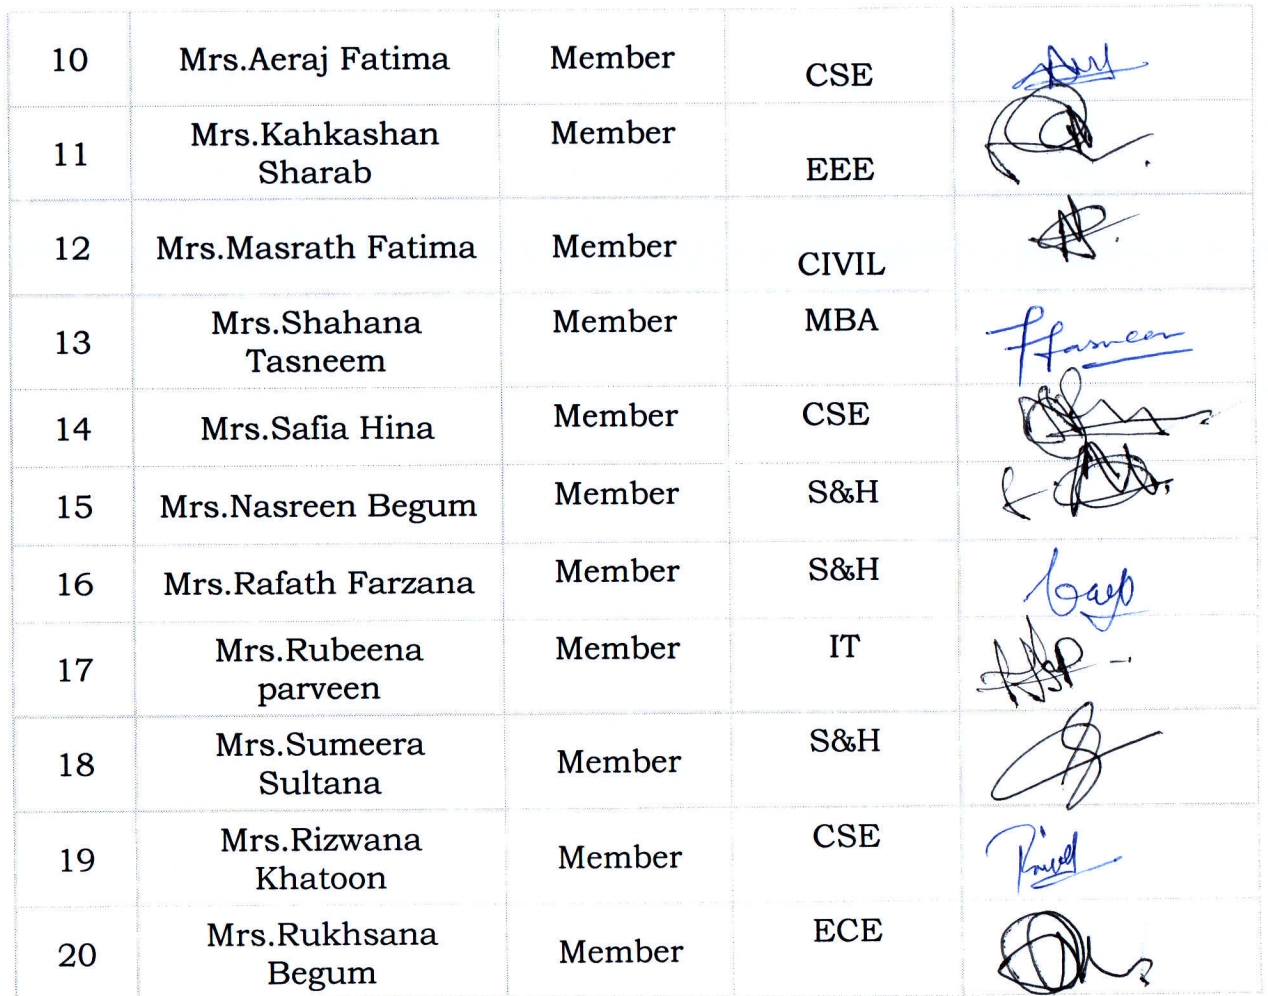 10 Mrs.Aeraj Fatima Member CSE
11 Mrs.Kahkashan Sharab Member EEE
12 Mrs.Masrath Fatima Member CIVIL
13 Mrs.Shahana Tasneem Member MBA Tasneem
14 Mrs.Safia Hina Member CSE
15 Mrs.Nasreen Begum Member S&H
16 Mrs.Rafath Farzana Member S&H
17 Mrs.Rubeena parveen Member IT
18 Mrs.Sumeera Sultana Member S&H
19 Mrs.Rizwana Khatoon Member CSE
20 Mrs.Rukhsana Begum Member ECE